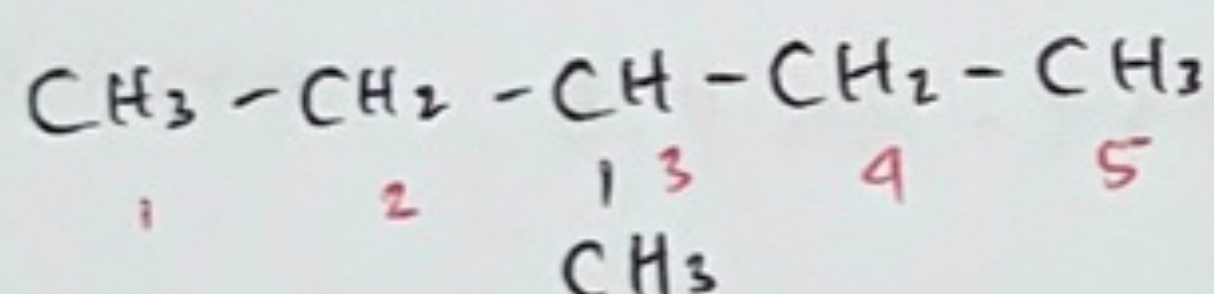 CH3 - CH2 - CH - CH2 - CH3
1 2 | 3 4 5
CH3